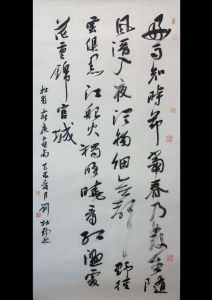 好雨知時節當春乃發生隨
風潛入夜潤物細無聲野徑
雲俱黑江船火獨明曉看紅濕處
花重錦官城
杜甫春夜喜雨